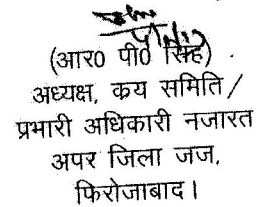 (आर० पी० सिंह)
अध्यक्ष, कय समिति /
प्रभारी अधिकारी नजारत
अपर जिला जज,
फिरोजाबाद।